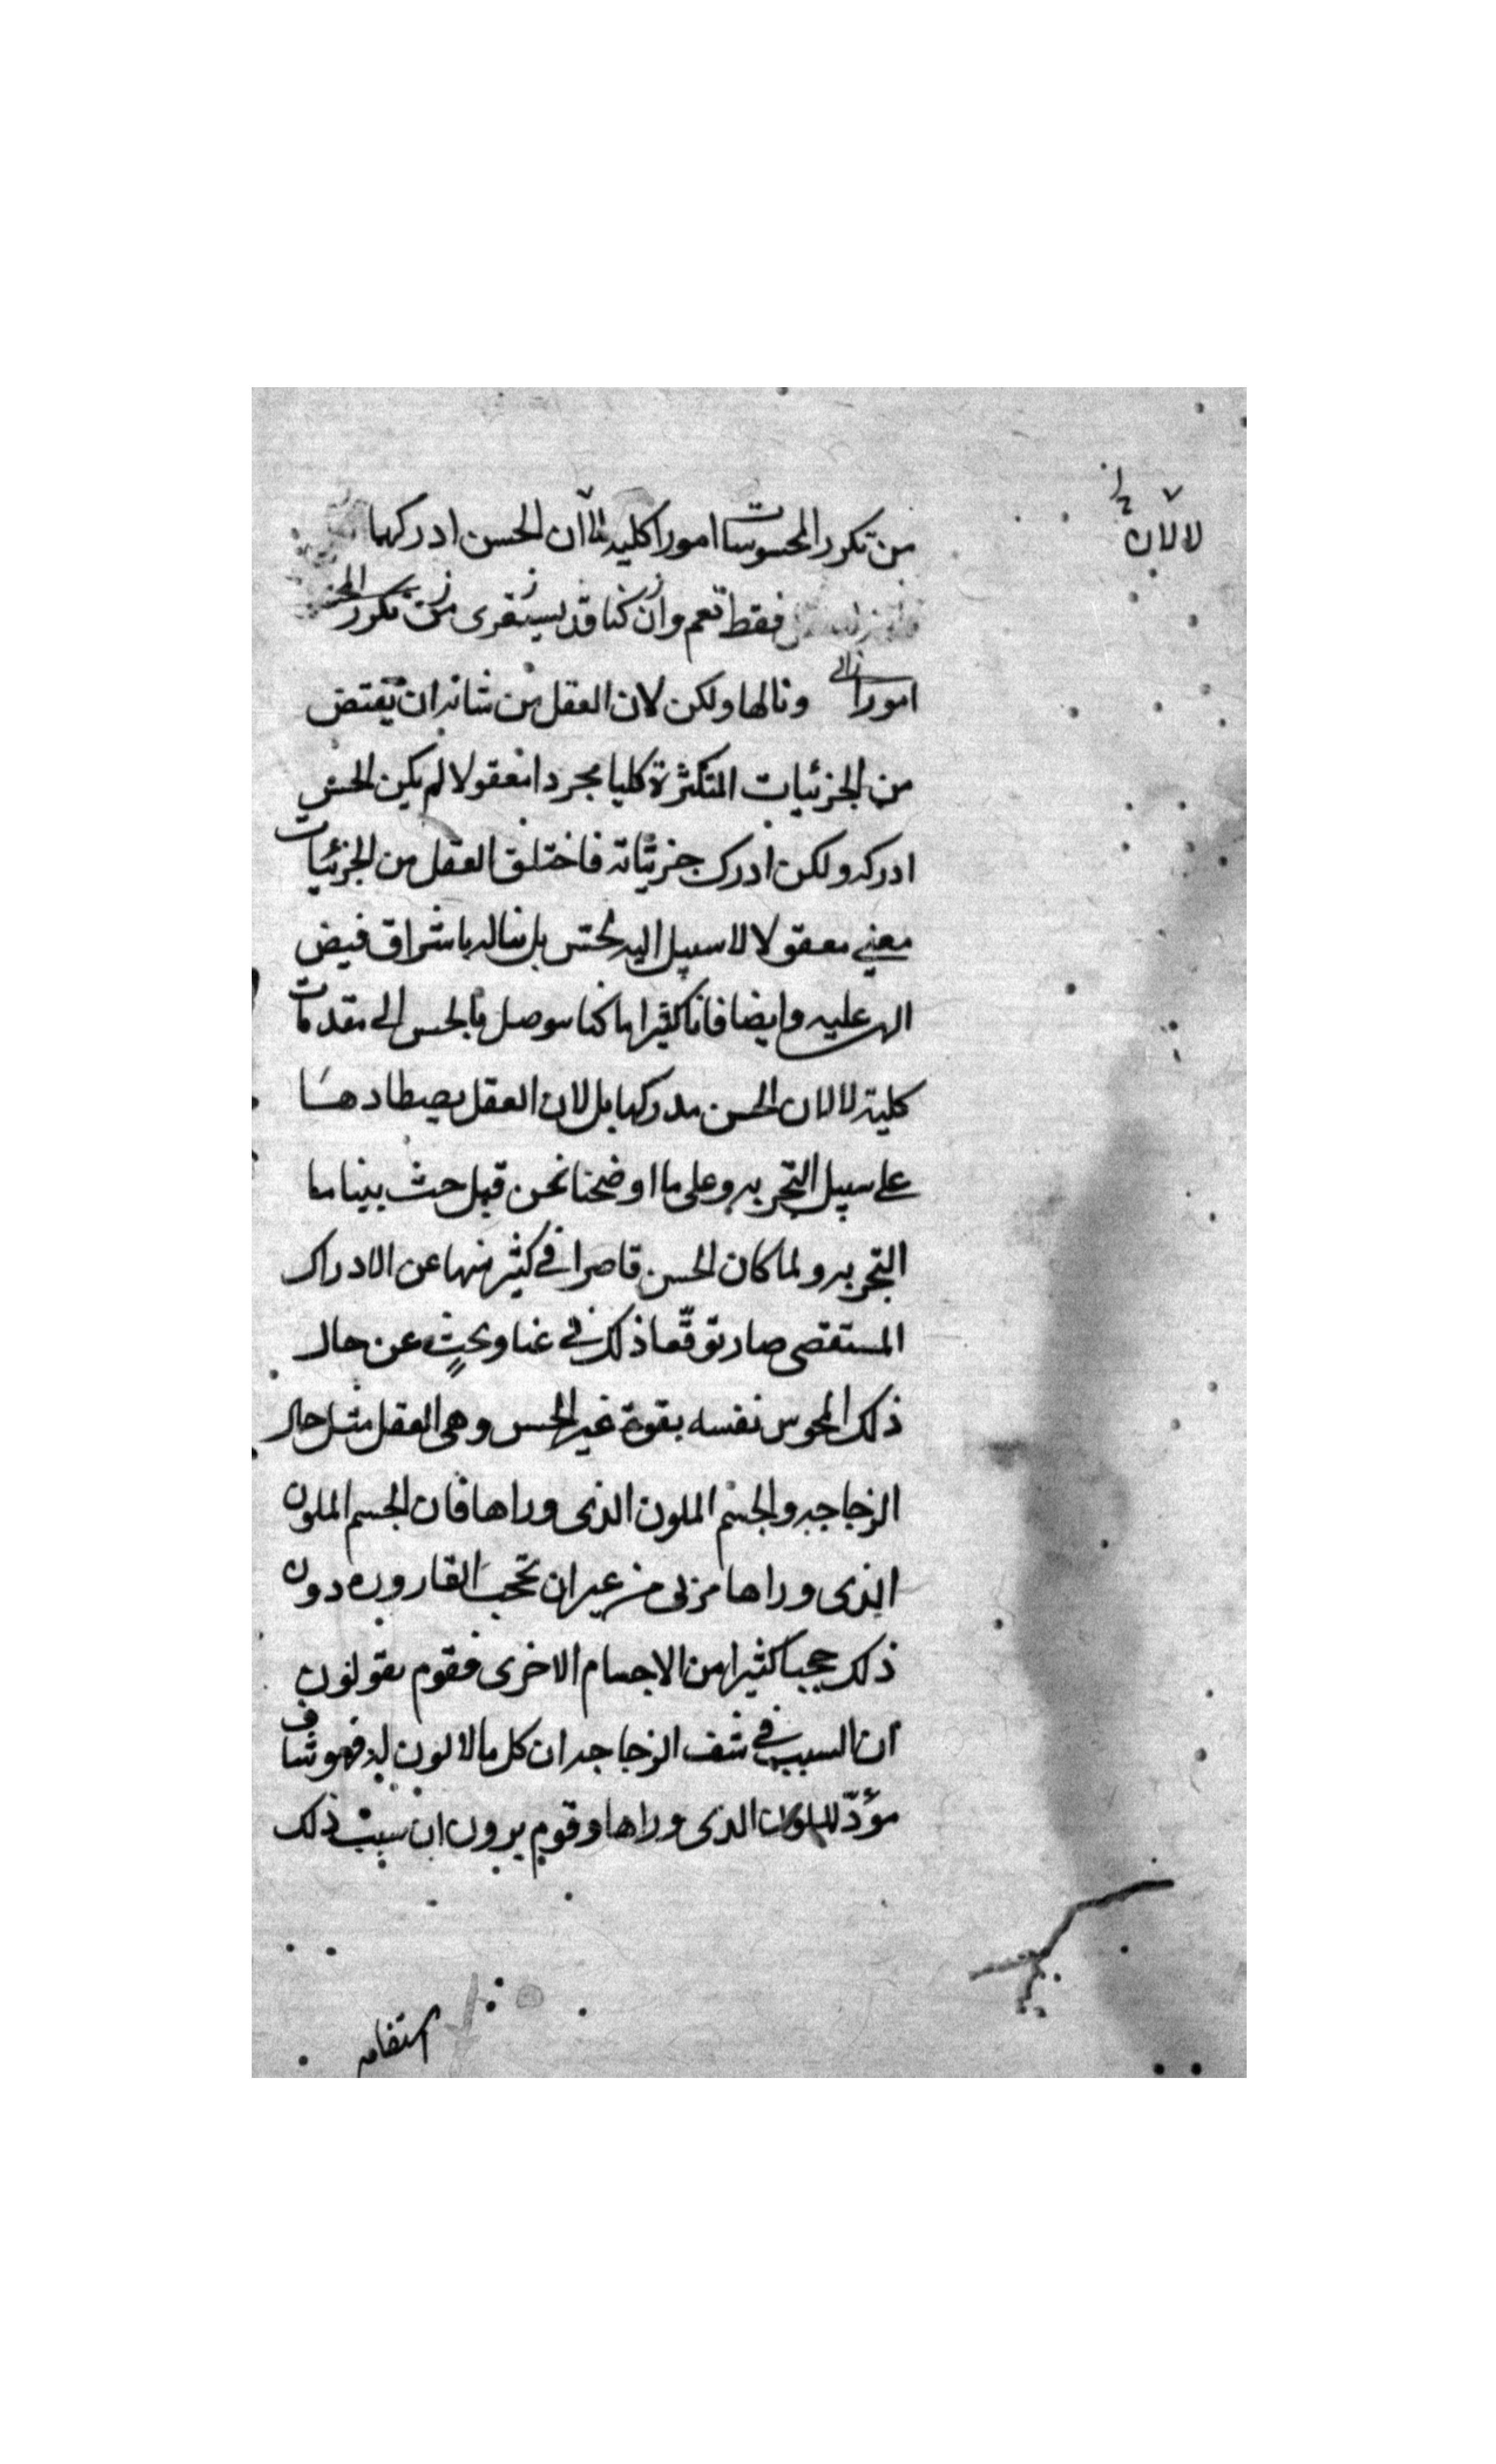 لا لان
من تكرر المحسوسات امورا كلية الا ان الحس ادركها
فقط نعم وان كنا قد يستقرى من تكرر الحس
امورا ونالها ولكن لان العقل من شانه ان يقتنص
من الجزئيات المتكثرة كليا مجردا معقولا لم يكن الحس
ادركه ولكن ادرك جزئياته فاختلق العقل من الجزئيات
معنى معقولا لا سبيل اليه للحس بل يناله باشراق فيض
الهى عليه وايضا فانا كثيرا ما كنا نتوصل بالحس الى مقدمات
كلية لا لان الحس يدركها بل لان العقل يصطادها
على سبيل التجربه وعلى ما اوضحنا نحن قبل حيث بينا ما
التجربه ولما كان الحس قاصرا فى كثير منها عن الادراك
المستقصى صار توقعنا ذلك فى عنا وبحث عن حال
ذلك المحسوس نفسه بقوة غير الحس وهى العقل مثل حال
الزجاجه والجسم الملون الذى وراها فان الجسم الملون
الذى وراها مرئى من غير ان تحجب القاروره دون
ذلك حجب كثير من الاجسام الاخرى فقوم يقولون
ان السبب فى شف الزجاجه ان كل ما لا لون له فهو شاف
مؤدّ للون الذى وراها وقوم يرون ان سبب ذلك
استقامه